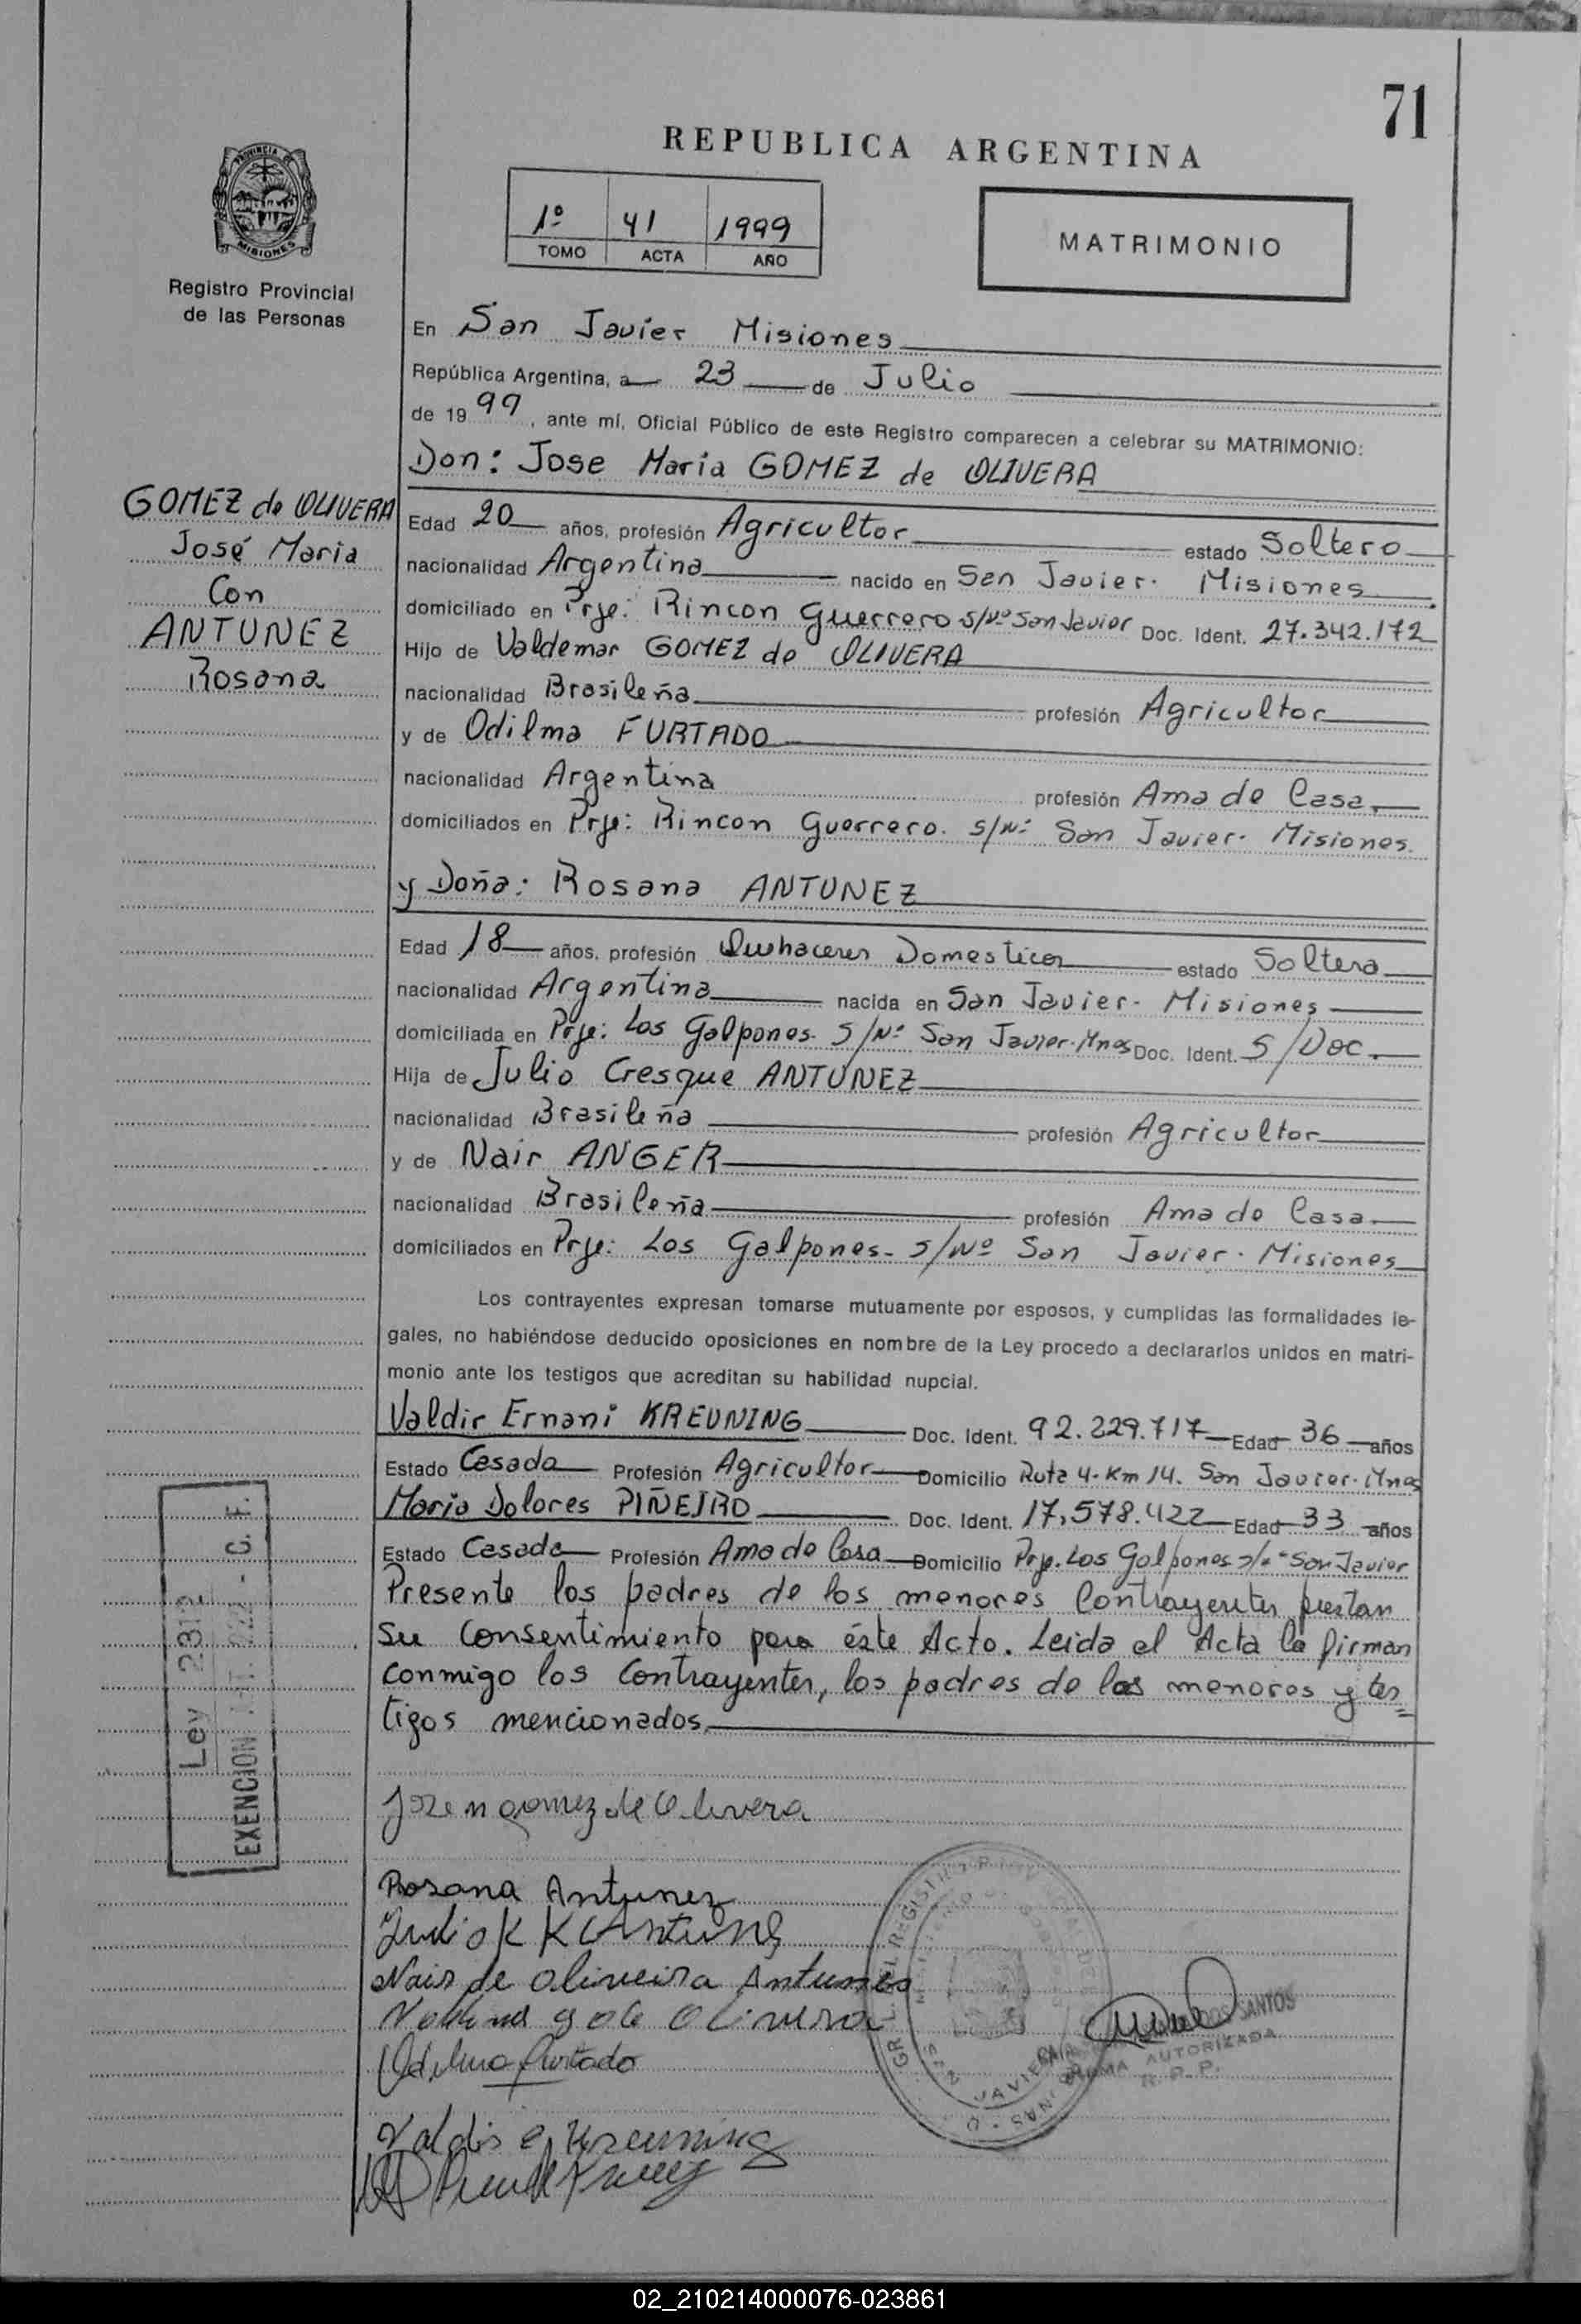 71
REPUBLICA ARGENTINA
PROVINCIA DE
MISIONES
Registro Provincial
de las Personas
1º 41 1999
TOMO ACTA AÑO
MATRIMONIO
En San Javier Misiones
República Argentina, a 23 de Julio
de 1999, ante mí, Oficial Público de este Registro comparecen a celebrar su MATRIMONIO:
Don: Jose Maria GOMEZ de OLIVERA
GOMEZ de OLIVERA
José Maria
Con
ANTUNEZ
Rosana
Edad 20 años, profesión Agricultor estado Soltero
nacionalidad Argentina nacido en San Javier. Misiones
domiciliado en Prje: Rincon Guerrero s/Nº San Javier Doc. Ident. 27.342.172
Hijo de Valdemar GOMEZ de OLIVERA
nacionalidad Brasileña profesión Agricultor
y de Odilma FURTADO
nacionalidad Argentina profesión Ama de Casa.
domiciliados en Prje: Rincon Guerrero. s/Nº San Javier. Misiones.
y Doña: Rosana ANTUNEZ
Edad 18 años, profesión Quehaceres Domesticos estado Soltera
nacionalidad Argentina nacida en San Javier- Misiones
domiciliada en Prje: Los Galpones- S/Nº San Javier-Mnes Doc. Ident. S/Doc.
Hija de Julio Cresque ANTUNEZ
nacionalidad Brasileña profesión Agricultor
y de Nair ANGER
nacionalidad Brasileña profesión Ama de Casa.
domiciliados en Prje: Los Galpones- s/Nº San Javier. Misiones
Los contrayentes expresan tomarse mutuamente por esposos, y cumplidas las formalidades le-
gales, no habiéndose deducido oposiciones en nombre de la Ley procedo a declararlos unidos en matri-
monio ante los testigos que acreditan su habilidad nupcial.
Valdir Ernani KREUNING Doc. Ident. 92.229.717 Edad 36 años
Estado Casado Profesión Agricultor Domicilio Ruta 4-Km 14. San Javier. Mnes
Maria Dolores PIÑEIRO Doc. Ident. 17.578.422 Edad 33 años
Estado Casada Profesión Ama de Casa Domicilio Prje. Los Galpones s/nº San Javier
Presente los padres de los menores Contrayentes prestan
su Consentimiento para éste Acto. Leida el Acta la firman
conmigo los Contrayentes, los padres de los menores y tes=
tigos mencionados.
Ley 2312
EXENCION ART. 222 - C. F.
Jose m gomez de Olivera
Rosana Antunez
Julio K K Antunes
Nair de oliveira Antunes
Odilma furtado
Valdir e Kreuning
DOS SANTOS
FIRMA AUTORIZADA
R. P. P.
02_210214000076-023861